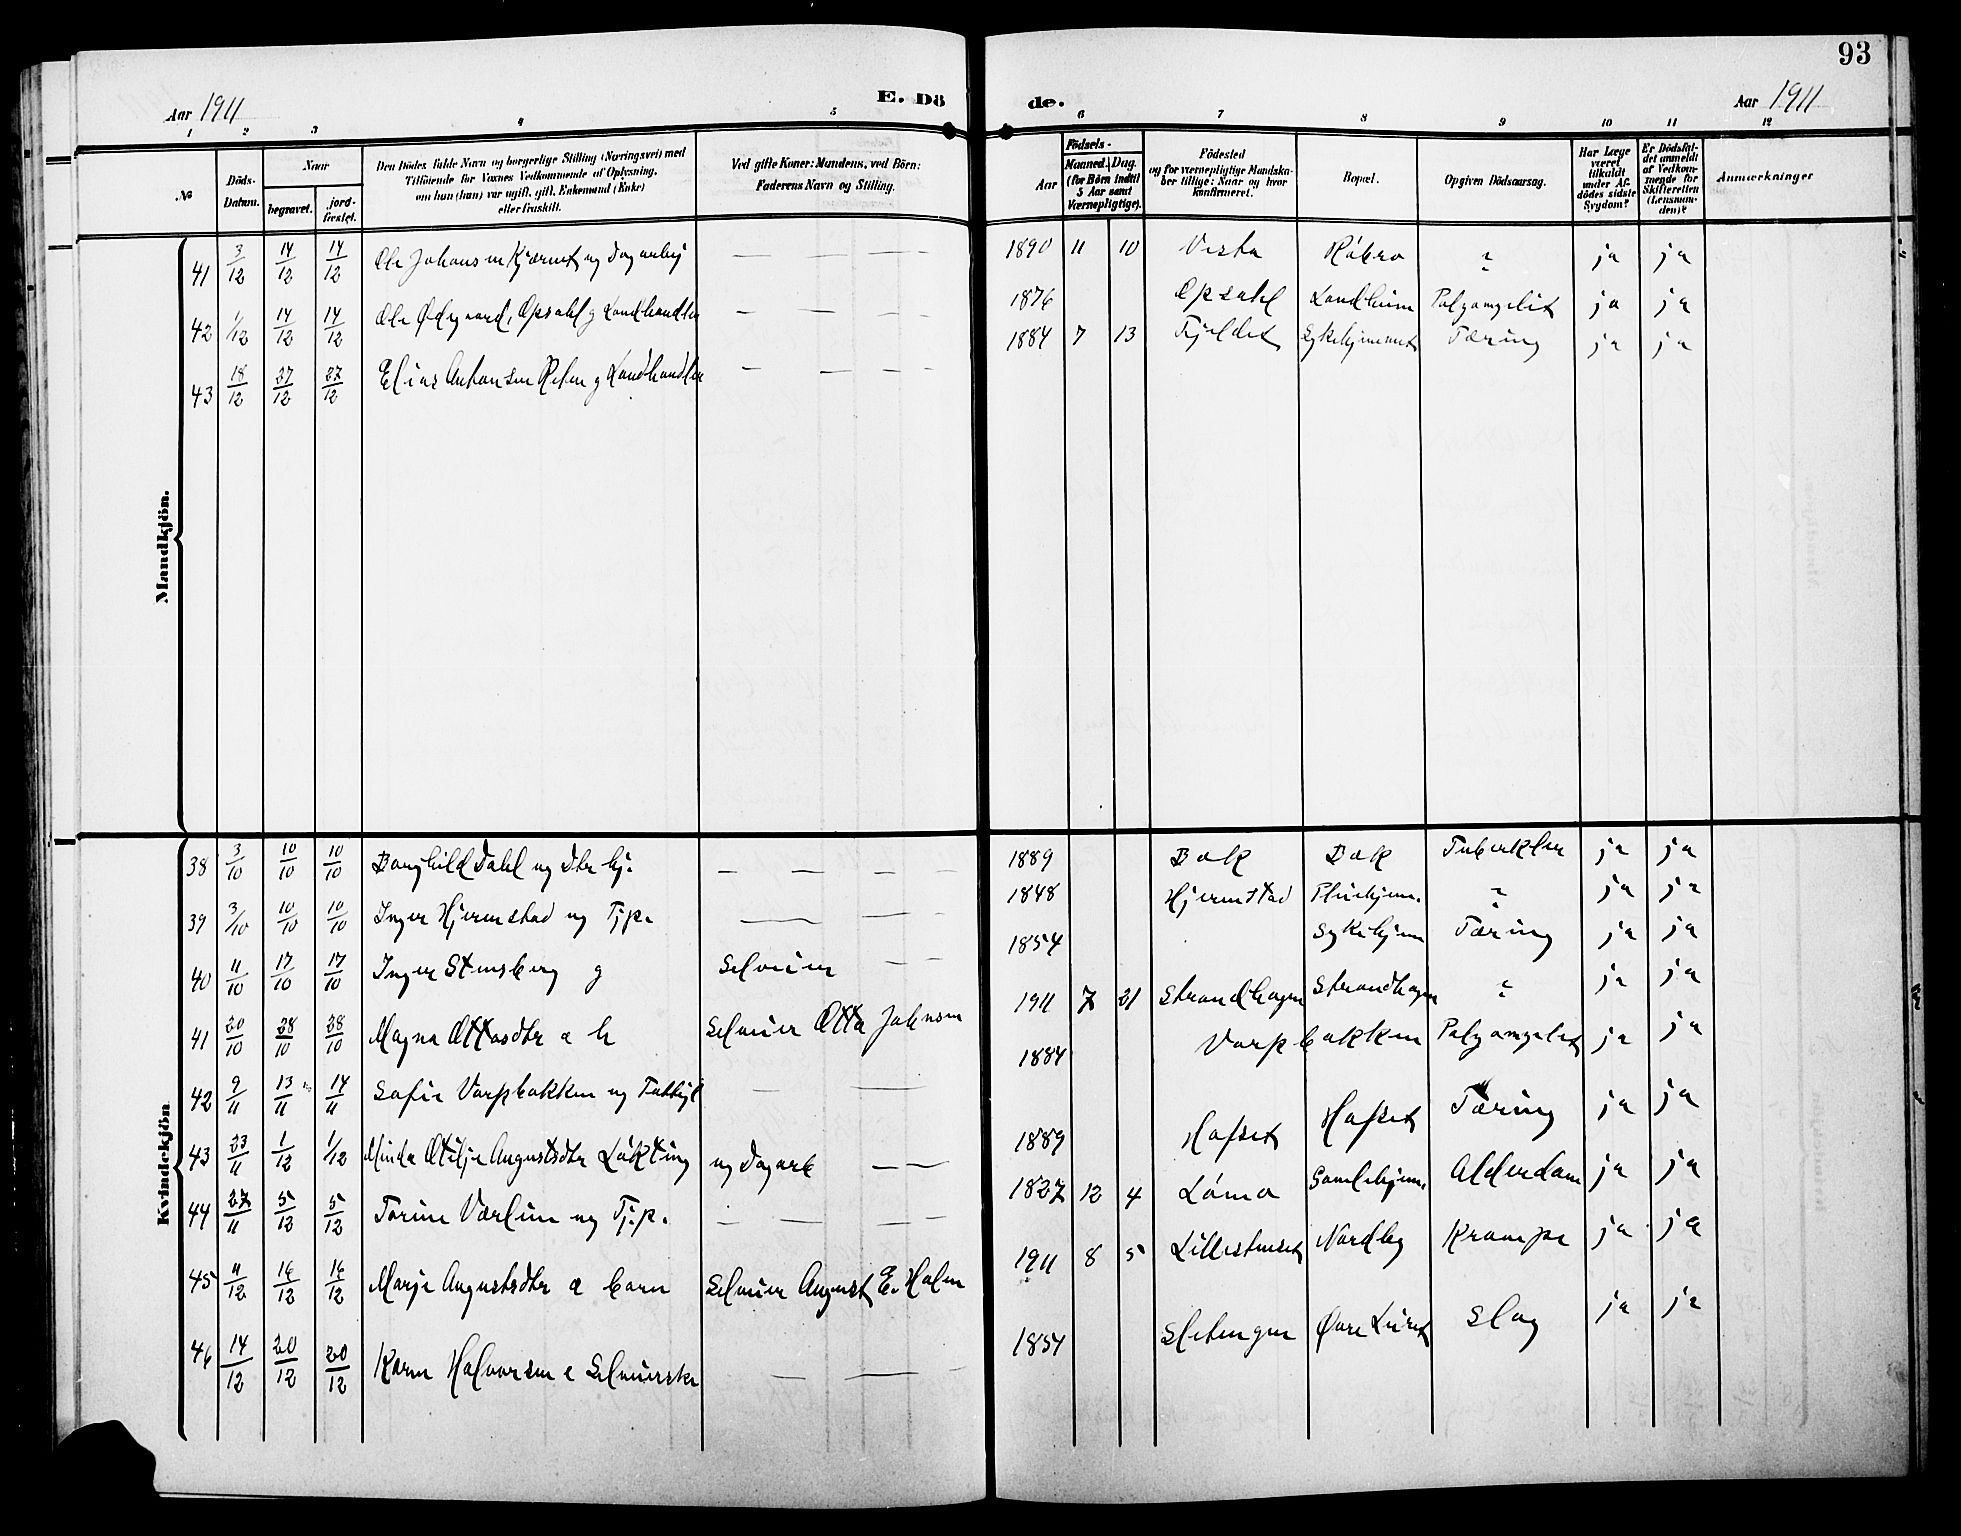 93
Aar 1911 E. Dö de. Aar 1911
1 2 3 4 5 6 7 8 9 10 11 12
No
Döds-
Datum.
Naar
begravet.
jord-
fæstet.
Den Dödes fulde Navn og borgerlige Stilling (Næringsvei) med
Tilföiende for Voxnes Vedkommende af Oplysning,
om han (hun) var ugift, gift, Enkemand (Enke)
eller fraskilt.
Ved gifte Koner: Mandens, ved Börn:
Faderens Navn og Stilling.
Födsels-
Aar
Maaned. Dag.
(for Börn indtil
5 Aar samt
Værnepligtige).
Födested
og for værnepligtige Mandska-
ber tillige: Naar og hvor
konfirmeret.
Bopæl.
Opgiven Dödsaarsag.
Har Læge
været
tilkaldt
under Af-
dödes sidste
Sygdom?
Er Dödsfal-
det anmeldt
af Vedkom-
mende for
Skifteretten
(Lensman-
den)?
Anmærkninger
Mandkjön.
41 3/12 14/12 14/12 Ole Johansen Kjærnet ug Dagarbej — — — — 1890 11 10 Vesta Röbro ? ja ja
42 1/12 14/12 14/12 Ole Ødegaard, Opsahl g Landhandler — — — — 1876 Opsahl Landheim Pulsaaregelit ja ja
43 18/12 27/12 27/12 Elias Antonsen g Landhandler — — — — 1884 7 13 Fjeldet Sykehjemmet Tæring ja ja
Kvindekjön
38 3/10 10/10 10/10 Borghild Dahl ug — — — — 1889 Bak Bak Tuberkler ja ja
39 3/10 10/10 10/10 Inger Hjermstad ug Tj.p. — — — 1848 Hjermstad Pleiehjem. ? ja ja
40 11/10 17/10 17/10 Inger Stensberg g Selveier — — 1854 Sykehjem Tæring ja ja
41 20/10 28/10 28/10 Magna Ottosdtr æ b Selveier Otto Johnsen 1911 7 21 Strandhagen Strandhagen ? ja ja
42 9/11 13/11 14/11 Sofie Varpbakken ug — — 1884 Varpbakken ja ja
43 23/11 1/12 1/12 Minda Otilje Augustsdtr Lökting ug Dagarb — — 1889 Hafset Hafset Tæring ja ja
44 27/11 5/12 5/12 Torine Værlien ug Tj.p. — — — — 1827 12 4 Löma Samlehjem. Alderdom ja ja
45 11/12 16/12 16/12 Marje Augustsdtr æ barn Selveier August E. Holm 1911 8 5 Lillestenset Nordby Krampe ja ja
46 14/12 20/12 20/12 Karen Halvorsen e Selveierske — — — 1854 Sletengen Øvre Slag ja ja